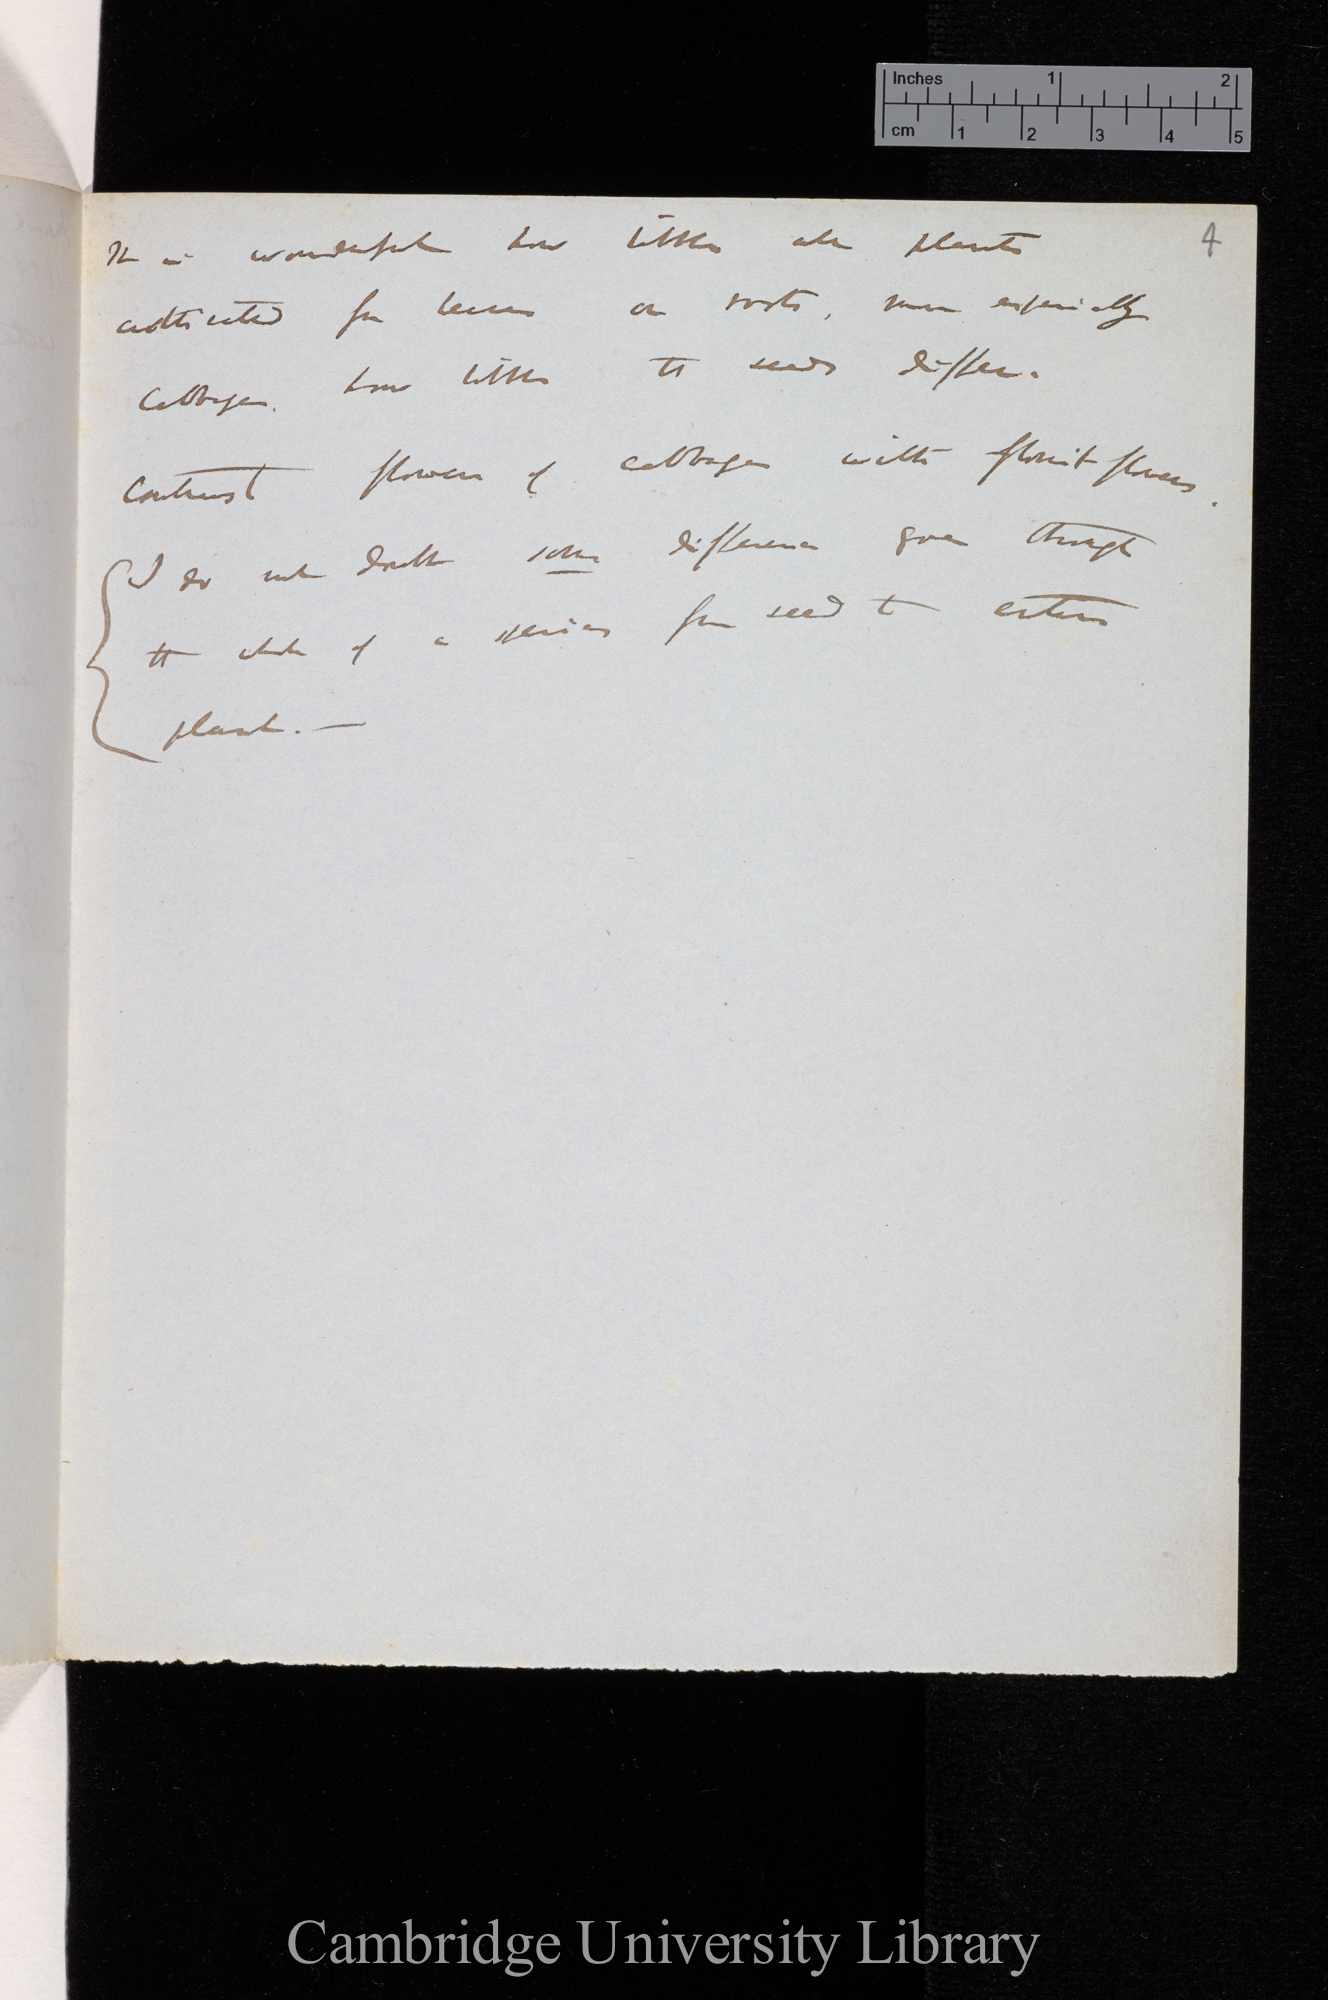 Inches 1 2
cm 1 2 3 4 5
4
It is wonderful how little all plants
cultivated for leaves or roots, more especially
Cabbages. how little the seeds differ.
Contrast flowers of cabbages with florist flowers.
I do not doubt some difference goes through
the whole of a species from seed to
plant. —
Cambridge University Library